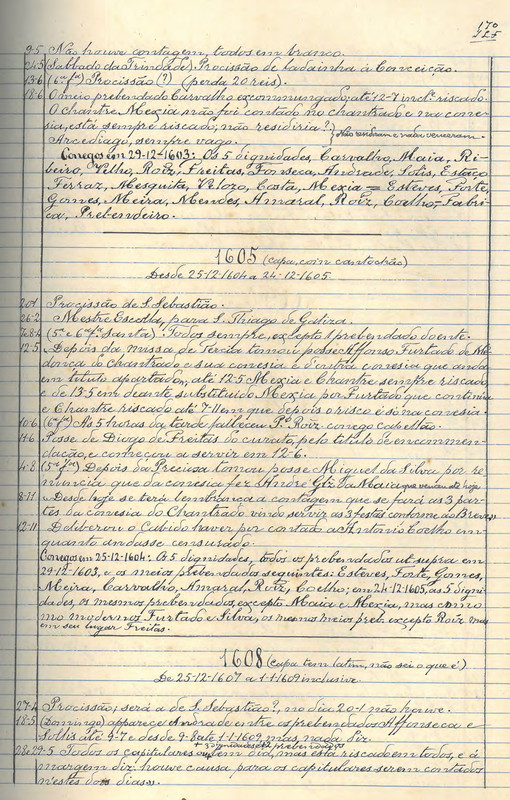 170
125
9-5 Não houve contagem, todos em branco.
24-5 (Sabbado da Trindade) Procissão de ladainha à Conceição.
13-6 (6ª fª) Procissão (?) (perda 20 reis).
18-6 O meio prebendado Carvalho excommungado; até 12-7 incl. riscado.
O chantre Mexia não foi contado no chantrado e na cone-
sia, está sempre riscado; não residiria?
Arcediago, sempre vago. não venceram.
Conegos em 29-12-1603: Os 5 dignidades, Carvalho, Maia, Ri-
beiro, Velho, Roiz, Freitas, Fonseca, Andrade, Solis, Estaço
Ferraz, Mesquita, Velozo, Costa, Mexia = Esteves, Forte,
Gomes, Meira, Mendes Amaral, Roiz, Coelho, - Fabri-
ca, Prebendeiro.
1605 (capa, com cantochão)
Desde 25-12-1604 a 24-12-1605
20-1 Procissão de S. Sebastião.
26-2 Mestre Escolha, para S. Thiago de Galiza.
7 e 8-4 (5ª e 6ª fª Santa). Todos sempre, excepto 1 prebendado doente.
12-5 Depois da missa de Tercia tomou posse Affonso Furtado de Me-
donça do Chantrado e sua conesia e d'outra conesia que anda
em titulo apartado, até 12-5 Mexia e Chantre sempre riscado
e de 13-5 em deante substituido Mexia por Furtado que continua
e Chantre riscado até 7-11 em que depois o risco é só na conesia.
10-6 (6ª fª) As 5 horas da tarde falleceu Pº Roiz conego cabellão.
11-6 Posse de Diogo de Freitas do curato, pelo titulo de encommen-
dação, e começou a servir em 12-6.
4-8 (5ª fª) Depois da Preciosa tomou posse Miguel da Silva por re-
nuncia que da conesia fez André Glz da Maia
8-11 Desde hoje se terá lembrança a contagem que se fará as 3 par
tes da conesia do Chantrado vindo servir as 3 festas conforme ao
12-11 Deliberou o Cabido haver por contado a Antonio Coelho em
quanto andasse censurado.
Conegos em 25-12-1604: Os 5 dignidades, todos os prebendados ut supra em
29-12-1603, e os meios prebendados seguintes: Esteves, Forte, Gomes,
Meira, Carvalho, Amaral, Roiz, Coelho; em 24-12-1605, as 5 digni-
dades, os mesmos prebendados, excepto Maia e Mexia, mas como
modernos Furtado e Silva, os mesmos meios preb. excepto Roiz mas
em seu lugar Freitas.
1608 (Capa tem latim, não sei o que é)
De 25-12-1607 a 1-1-1609 inclusive
27-4 Procissão; será a de S. Sebastião?, no dia 20-1 não houve.
18-5 (Domingo) apparece Andrade entre os prebendados Affonseca e
Sollis até 9-7 e desde 9-8 até 1-1-1609, mas nada diz.
28 e 29-5 Todos os capitulares tem dia, mas está riscado em todos, e á
margem diz: houve causa para os capitulares serem contados
n'estes dous dias.